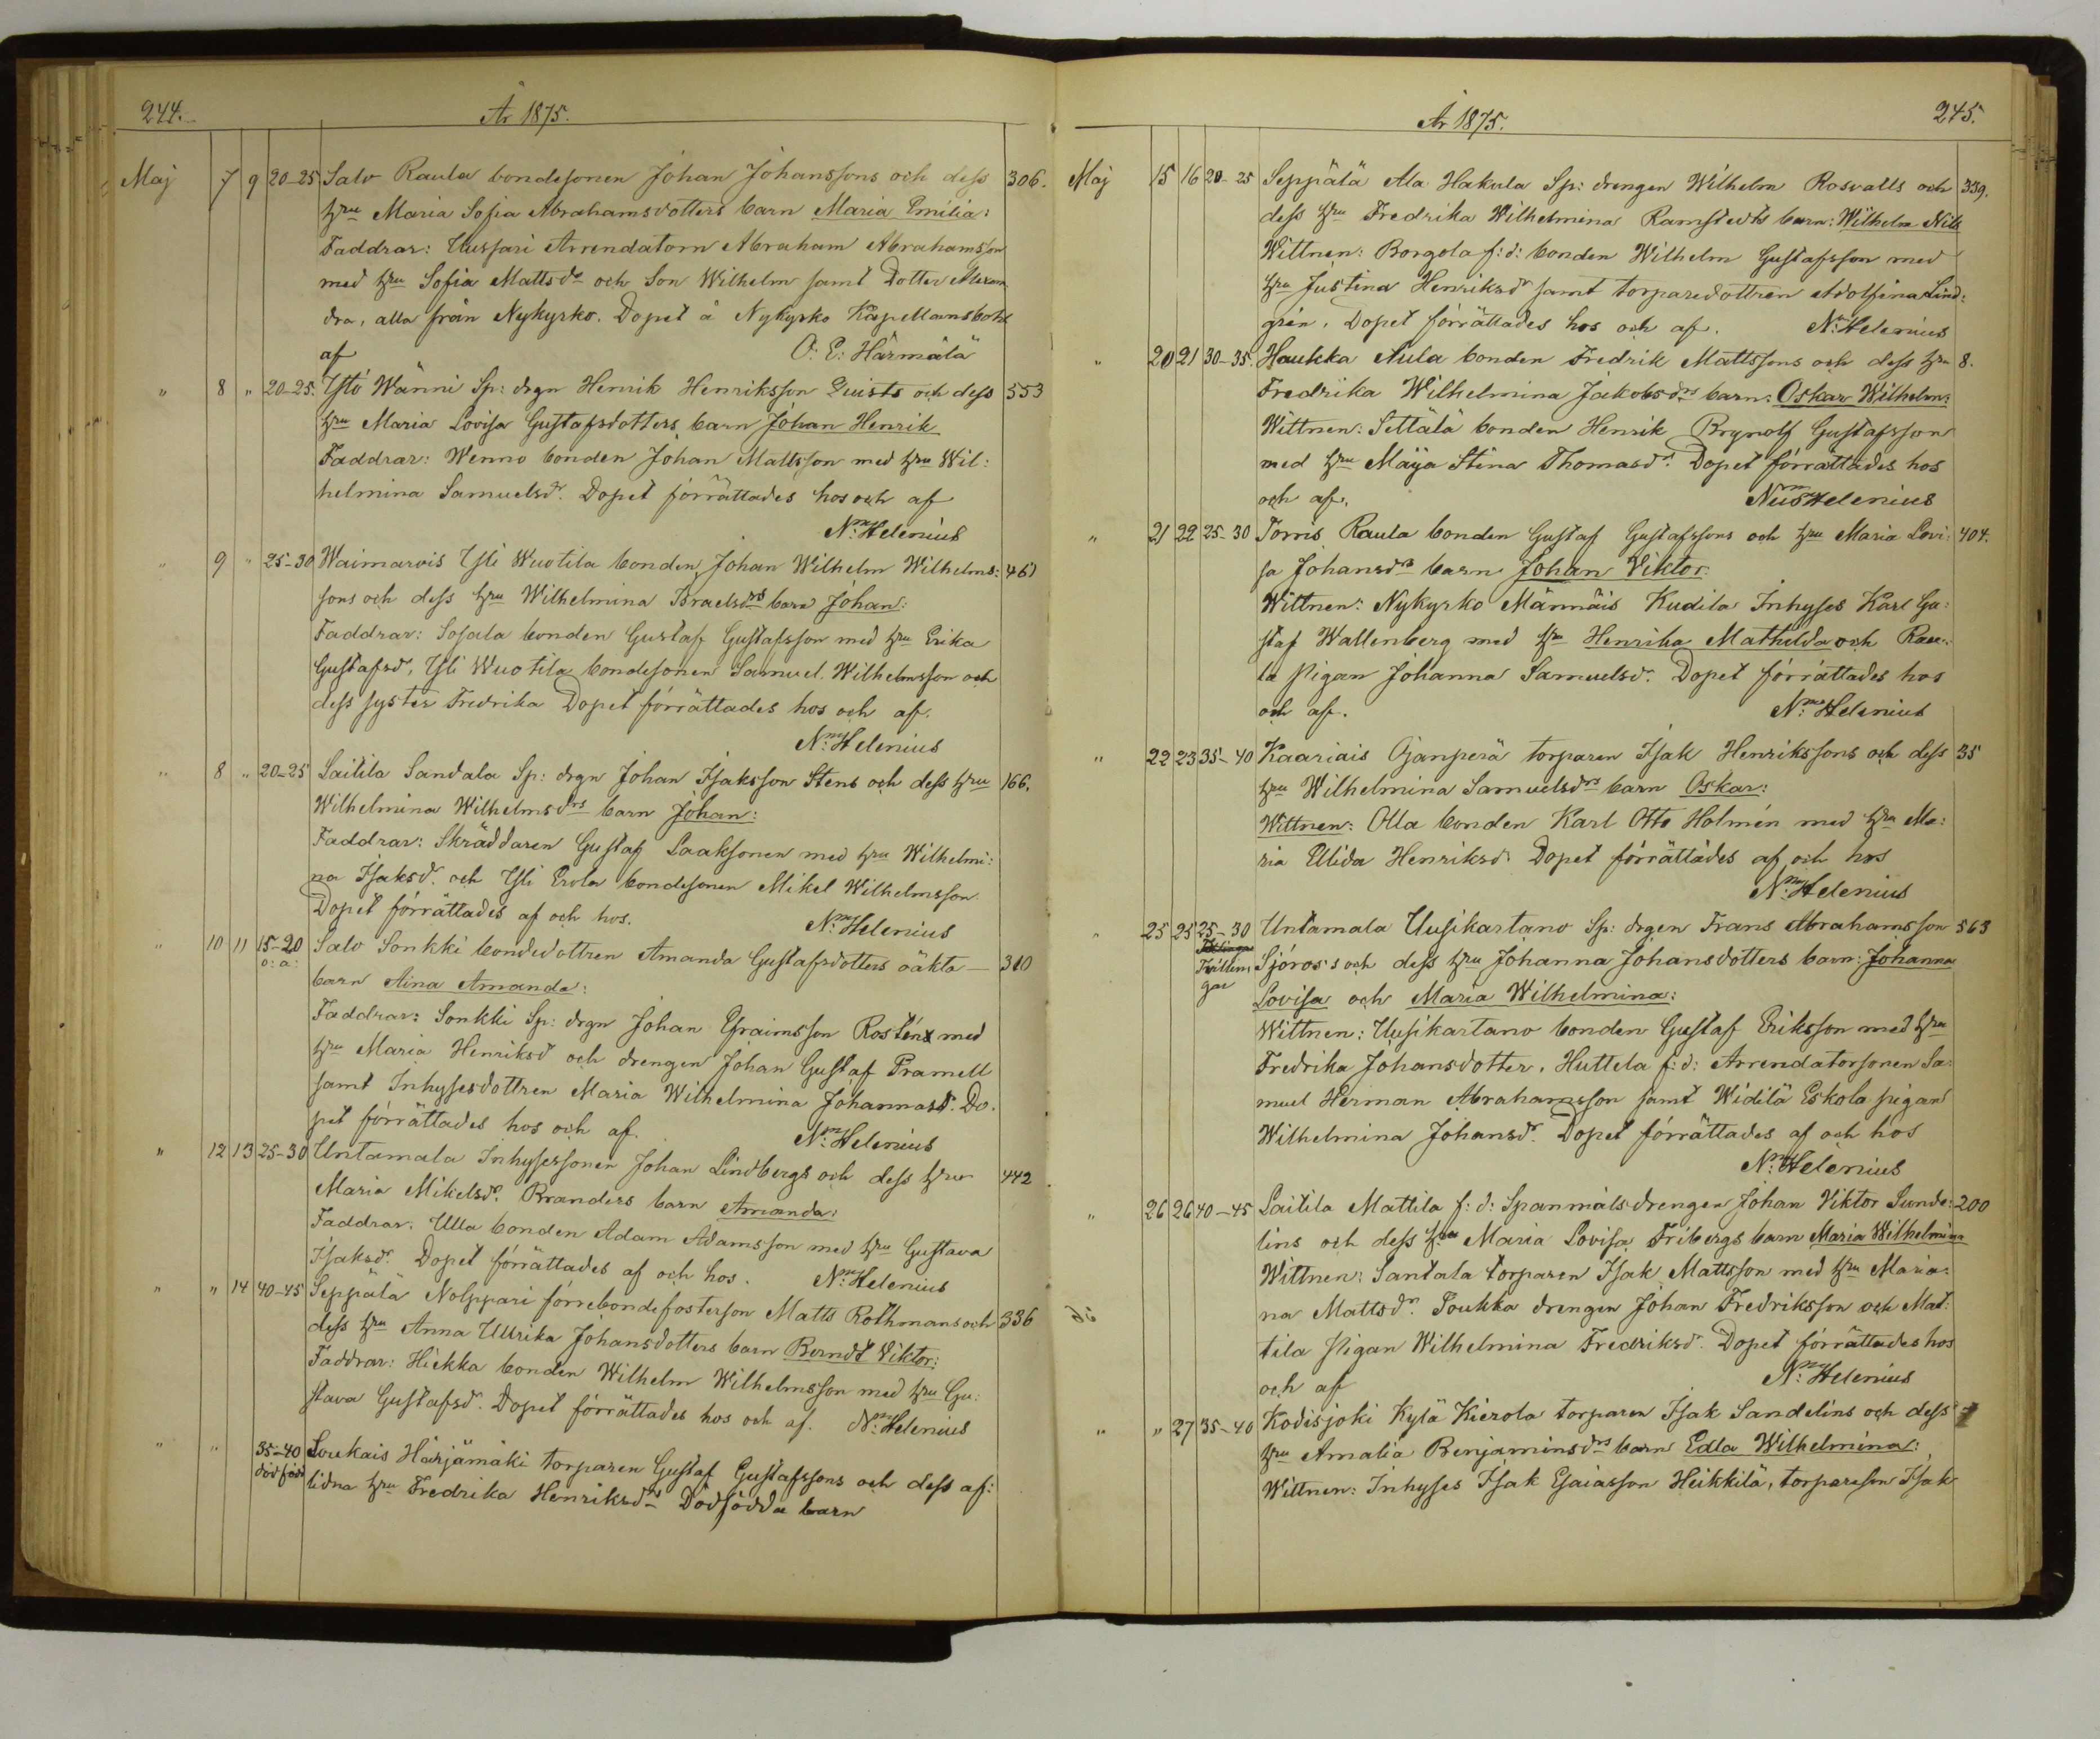 244.
År 1875.
Maj 7 9 20-25 Salo Raula bondesonen Johan Johanssons och dess 306.
hru Maria Sofia Abrahamsdotters barn Maria Emilia:
Faddrar: Uusjari Arrendatorn Abraham Abrahamsson
med hru Sofia Mattsdr och Son Wilhelm samt Dotter Alexan
dra, alla från Nykyrko. Dopet å Nykyrko Kapellansbohl
af O: E: Härmälä
" 8 " 20-25. Ylö Wänni Sp: drgn Henrik Henriksson Quists och dess 553
hru Maria Lovisa Gustafsdotters barn Johan Henrik
Faddrar: Wenno bonden Johan Mattsson med hru Wil:
helmina Samuelsdr. Dopet förrättades hos och af
Nms Helenius
" 9 " 25-30 Waimarois Yli Wuotila bonden Johan Wilhelm Wilhelms: 461
sons och dess hru Wilhelmina Israelsdrs barn Johan:
Faddrar: Sojala bonden Gustaf Gustafsson med hru Erika
Gustafsdr, Yli Wuotila bondesonen Samuel Wilhelmsson och
dess syster Fredrika Dopet förrättades hos och af.
Nms Helenius
" 8 " 20-25 Laitila Sandala Sp: drgn Johan Isaksson Stens och dess hru 166.
Wilhelmina Wilhelmsdrs barn Johan:
Faddrar: Skräddaren Gustaf Laaksonen med hru Wilhelmi:
na Isaksdr. och Yli Erola bondesonen Mikel Wilhelmsson
Dopet förrättades af och hos. Nms Helenius
" 10 11 15-20 Salo Sonkki bondedottren Amanda Gustafsdotters oäkta - 310
o: ä: barn Aina Amanda:
Faddrar: Sonkki Sp: drgn Johan Efraimsson Rostén med
hru Maria Henriksd och drengen Johan Gustaf Pramell
samt Inhysesdottren Maria Wilhelmina Johannasdr. Do.
pet förrättades hos och af. Nms Helenius
" 12 13 25-30 Untamala Inhysessonen Johan Lindbergs och dess hru 442
Maria Mikelsdr. Branders barn Amanda:
Faddrar. Ulla bonden Adam Adamsson med hru Gustava
Isaksdr. Dopet förrättades af och hos. Nms Helenius
" " 14 40-45 Seppälä Nolppari förrebondefosterson Matts Rothmans och 336
dess hru Anna Ullrika Johansdotters barn Berndt Viktor:
Faddrar: Hiekka bonden Wilhelm Wilhelmsson med hru Gu:
stava Gustafsd. Dopet förrättades hos och af. Nms Helenius
" " 35-40 Soukais Härjämäki torparen Gustaf Gustafssons och dess af:
dödfödd lidna hru Fredrika Henriksdrs Dödfödda barn
År 1875.
245.
Maj 15 16 20-25 Seppälä Ala Hakula Sp: drengen Wilhelm Rosvalls och 339.
dess hru Fredrika Wilhelmina Ramstedts barn: Wilhelm Nils
Wittnen: Borgola f: d: bonden Wilhelm Gustafsson med
hru Justina Henriksdr samt torparedottren Adolfina Lind:
grén. Dopet förrättades hos och af. Nms Helenius
" 20 21 30-35. Haukka Aula bonden Fredrik Mattssons och dess hru 8.
Fredrika Wilhelmina Jakobsdrs barn: Oskar Wilhelm:
Wittnen: Settälä bonden Henrik Brynolf Gustafsson
med hru Maija Stina Thomasdr. Dopet förrättades hos
och af. Nms Helenius
" 21 22 25-30 Torris Raula bonden Gustaf Gustafssons och hru Maria Lovi: 404.
sa Johansdrs barn Johan Viktor.
Wittnen: Nykyrko Männäis Kudila Inhyses Karl Gu:
staf Wallenberg med hru Henrika Mathilda och Rau:
la Pigan Johanna Samuelsdr. Dopet förrättades hos
och af. Nms Helenius
" 22 23 35-40 Kaariais Ojanperä torparen Isak Henrikssons och dess 35
hru Wilhelmina Samuelsdrs barn Oskar:
Wittnen: Olla bonden Karl Otto Holmén med hru Ma:
ria Ulida Henriksd. Dopet förrättades af och hos
Nms Helenius
" 25 25 25-30 Untamala Uusikartano Sp: drgen Frans Abrahamsson 563
Tvillin Sjöros's och dess hru Johanna Johansdotters barn: Johanna
gar Lovisa och Maria Wilhelmina:
Wittnen: Uusikartano bonden Gustaf Eriksson med hru
Fredrika Johansdotter. Huttela f: d: Arrendatorsonen Sa:
muel Herman Abrahamsson samt Widilä Eskola pigan
Wilhelmina Johansdr. Dopet förrättades af och hos
Nms Helenius
" 26 26 40-45 Laitila Mattila f: d: Spanmålsdrengen Johan Viktor Sunde: 200
lins och dess hru Maria Lovisa Fribergs barn Maria Wilhelmina
Wittnen: Santala torparen Isak Mattsson med hru Maria:
na Mattsdr. Soukka drengen Johan Fredriksson och Mat:
tila Pigan Wilhelmina Fredriksd. Dopet förrättades hos
och af Nms Helenius
" " 27 35-40 Kodisjoki Kylä Kierola torparen Isak Sandelins och dess
hru Amalia Benjaminsdrs barn Edla Wilhelmina:
Wittnen: Inhyses Isak Esaiasson Heikkilä, torpareson Isak